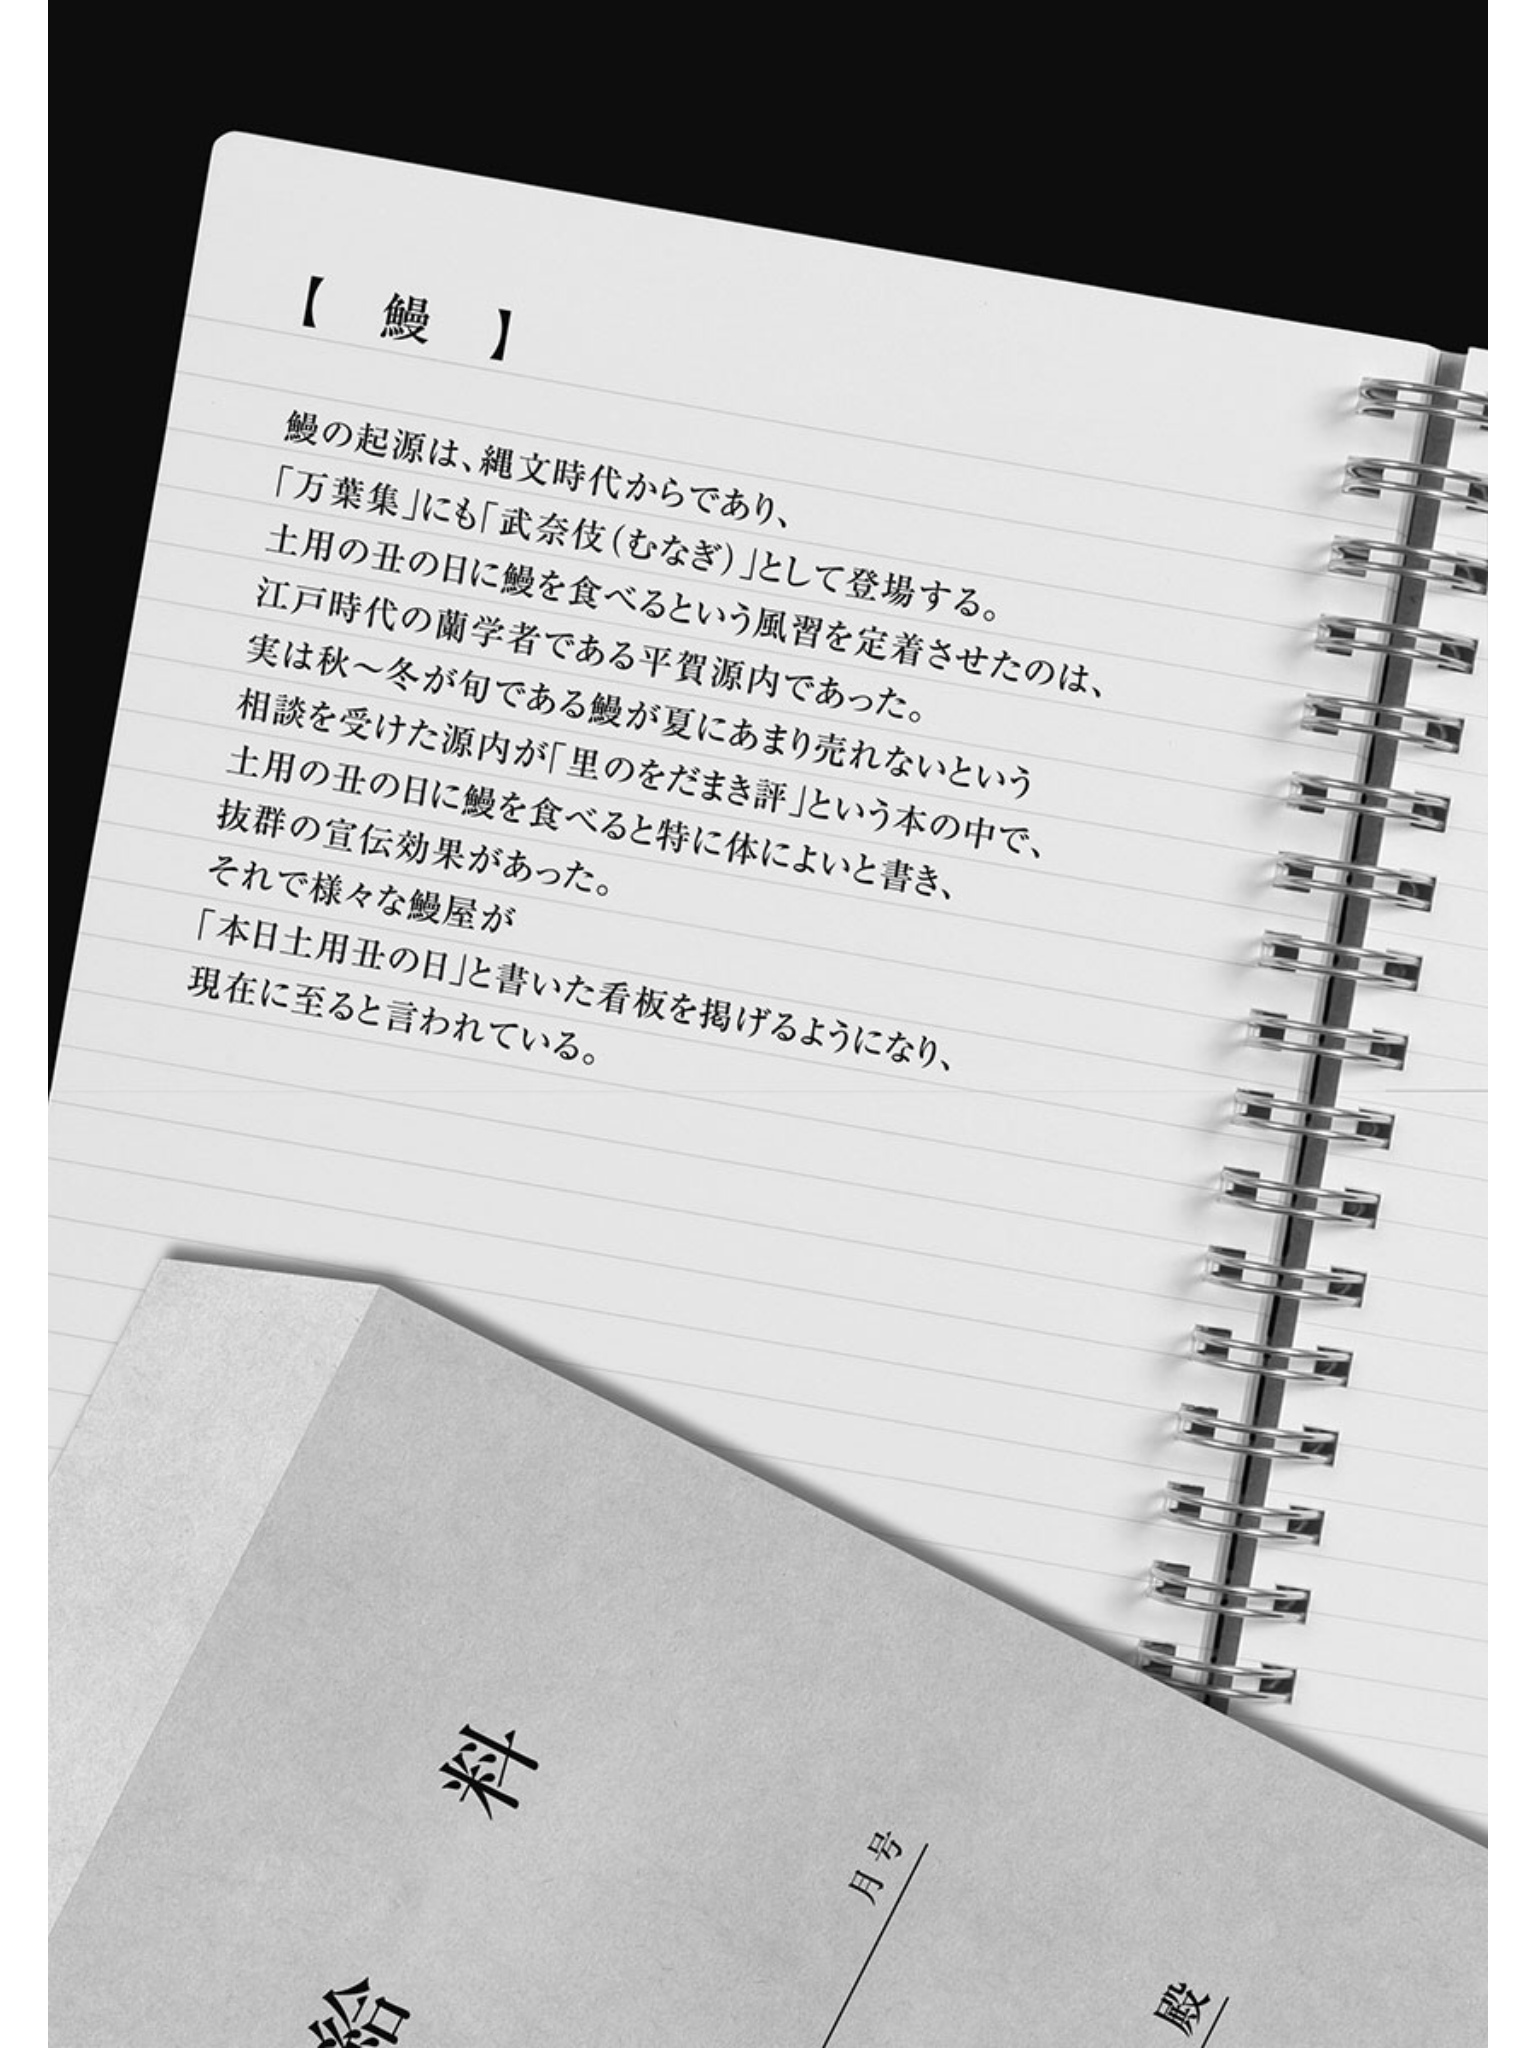 【　鰻　】
鰻の起源は、縄文時代からであり、
「万葉集」にも「武奈伎（むなぎ）」として登場する。
土用の丑の日に鰻を食べるという風習を定着させたのは、
江戸時代の蘭学者である平賀源内であった。
実は秋〜冬が旬である鰻が夏にあまり売れないという
相談を受けた源内が「里のをだまき評」という本の中で、
土用の丑の日に鰻を食べると特に体によいと書き、
抜群の宣伝効果があった。
それで様々な鰻屋が
「本日土用丑の日」と書いた看板を掲げるようになり、
現在に至ると言われている。
給料
月号
殿